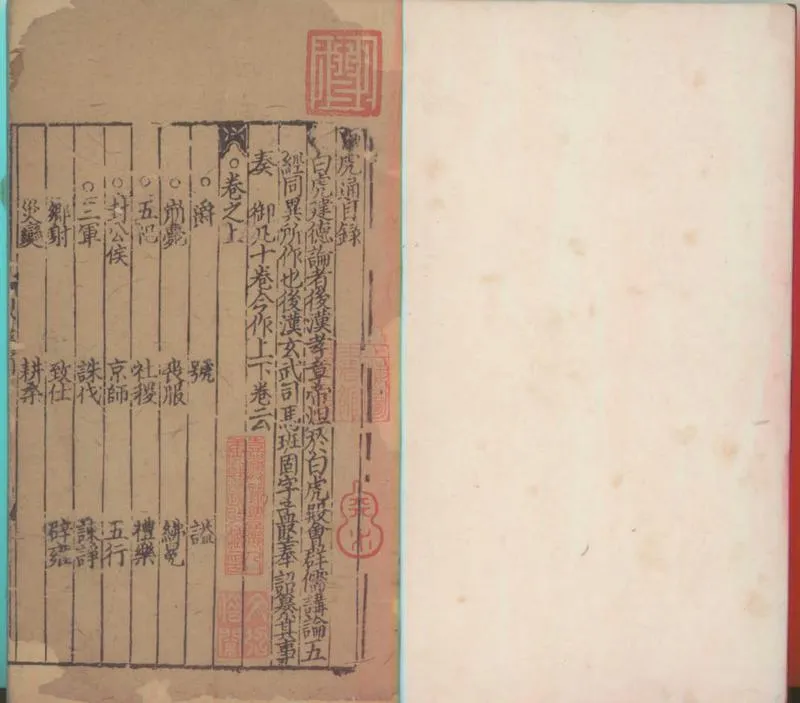 虎通目錄
白虎建德論者後漢孝章帝坦於白虎殿會群儒講論五
經同異所作也後漢玄武司馬班固字孟堅奉 詔纂其事
奏 御凡十卷今作上下卷云
○卷之上
○爵 號 謚
○崩薨 喪服 紼冕
○五祀 社稷 禮樂
○封公侯 京師 五行
○三軍 誅伐 諫諍
鄉射 致仕 辟雍
災變 耕桑